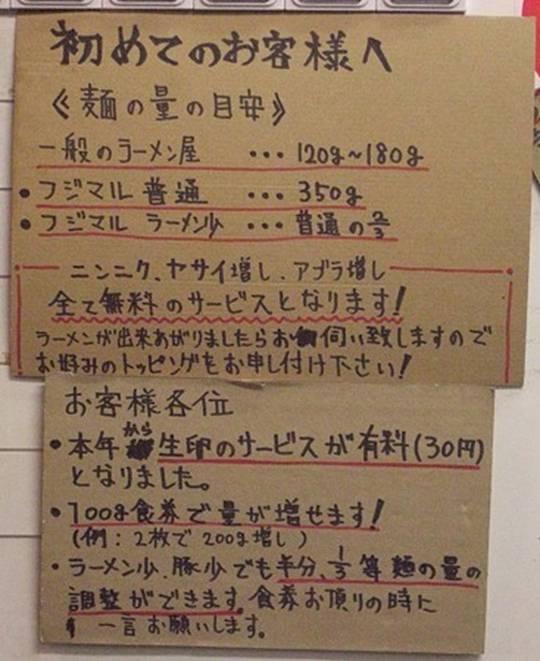 初めてのお客様へ
《麺の量の目安》
一般のラーメン屋 ・・・ 120g~180g
・フジマル 普通 ・・・ 350g
・フジマル ラーメン少 ・・・ 普通の2/3
ニンニク、ヤサイ増し、アブラ増し
全て無料のサービスとなります!
ラーメンが出来あがりましたらお伺い致しますので
お好みのトッピングをお申し付け下さい!
お客様各位
・本年から生卵のサービスが有料(30円)
となりました。
・100g食券で量が増せます!
(例:2枚で200g増し)
・ラーメン少、豚少でも半分、1/3等麺の量の
調整ができます。食券お頂りの時に
一言お願いします。